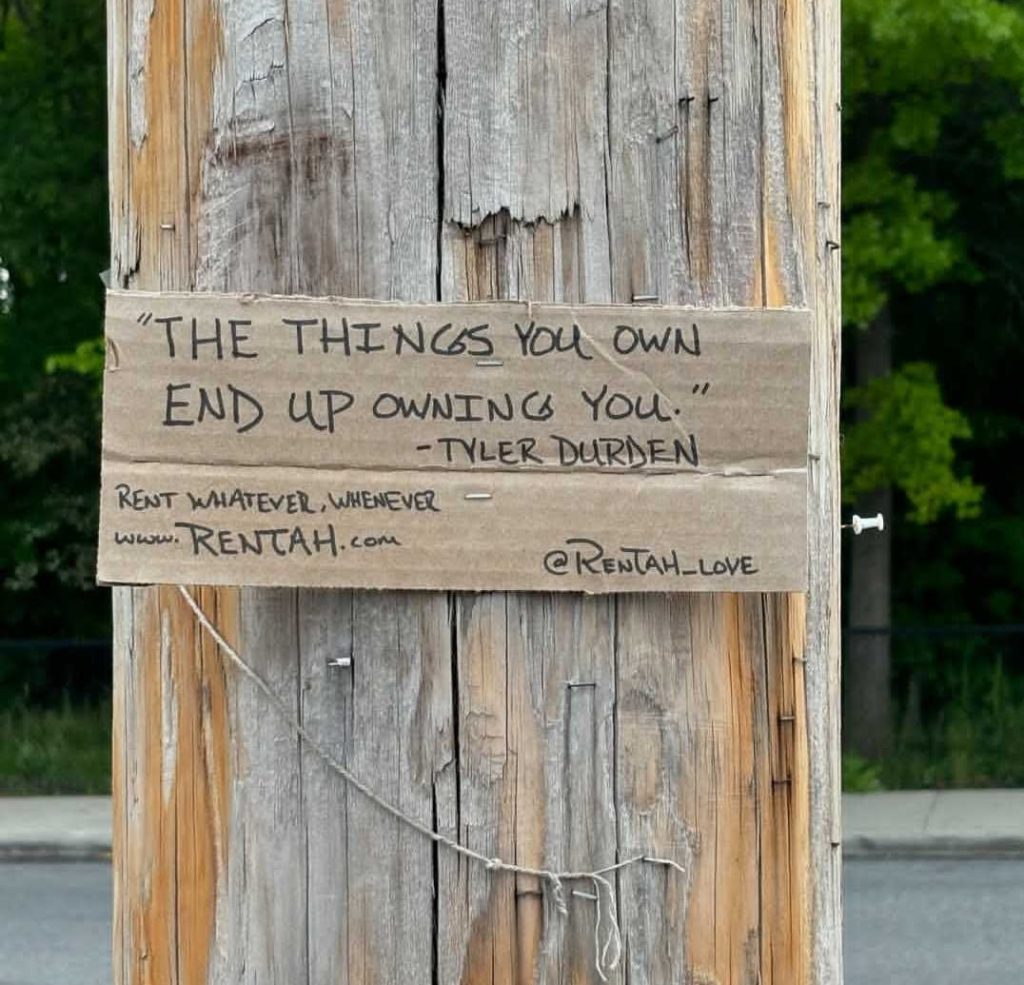 "THE THINGS YOU OWN
END UP OWNING YOU."
-TYLER DURDEN
RENT WHATEVER, WHENEVER
www.RENTAH.com
@RENTAH_LOVE